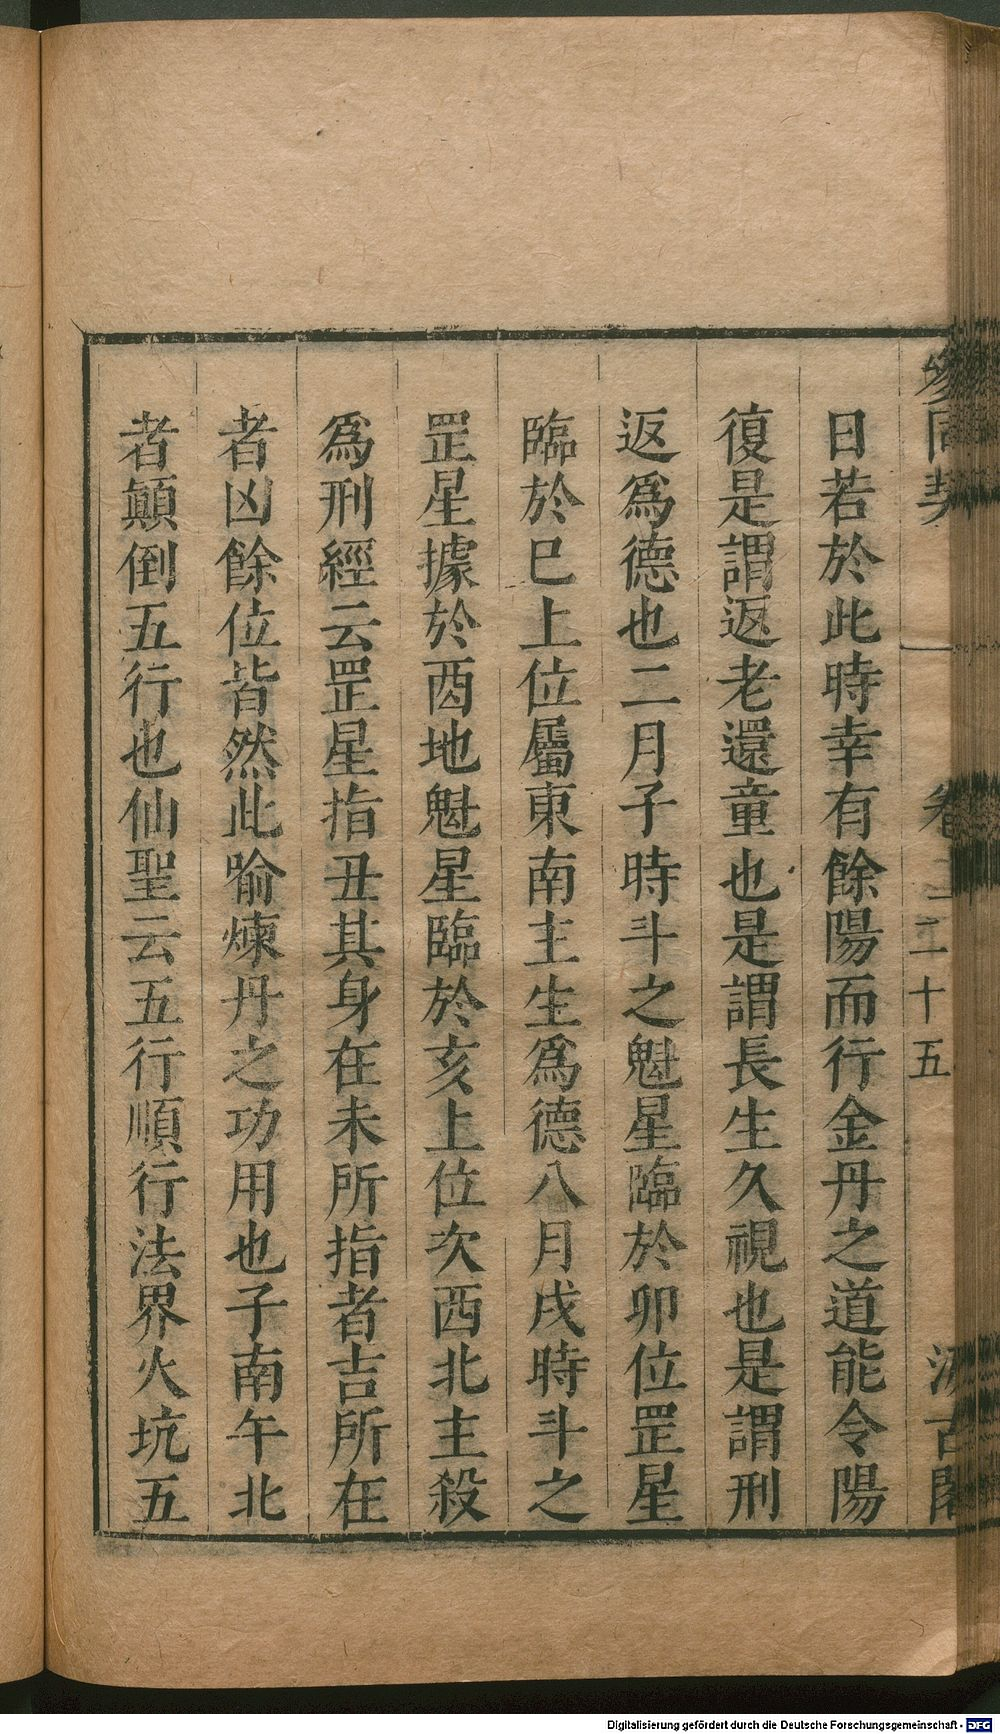 參同契 卷二 二十五 汲古閣
日若於此時幸有餘陽而行金丹之道能令陽
復是謂返老還童也是謂長生久視也是謂刑
返爲德也二月子時斗之魁星臨於卯位罡星
臨於巳上位屬東南主生爲德八月戌時斗之
罡星據於酉地魁星臨於亥上位次西北主殺
爲刑經云罡星指丑其身在未所指者吉所在
者凶餘位皆然此喻煉丹之功用也子南午北
者顛倒五行也仙聖云五行順行法界火坑五
Digitalisierung gefördert durch die Deutsche Forschungsgemeinschaft - DFG